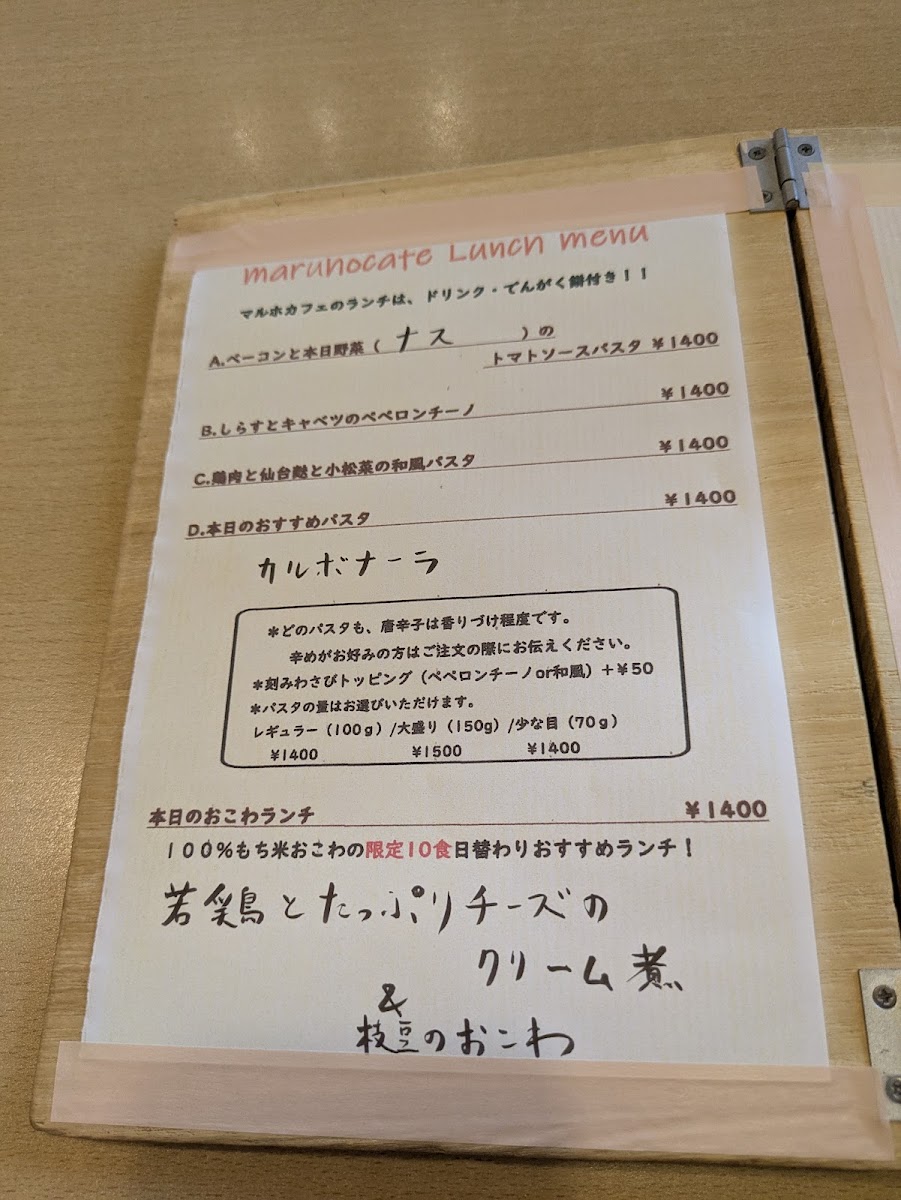 marunocafe Lunch menu
マルホカフェのランチは、ドリンク・でんがく餅付き！！
A.ベーコンと本日野菜（ ナス ）の
トマトソースパスタ ¥1400
B.しらすとキャベツのペペロンチーノ ¥1400
C.鶏肉と仙台麩と小松菜の和風パスタ ¥1400
D.本日のおすすめパスタ ¥1400
カルボナーラ
＊どのパスタも、唐辛子は香りづけ程度です。
辛めがお好みの方はご注文の際にお伝えください。
＊刻みわさびトッピング（ペペロンチーノor和風）＋¥50
＊パスタの量はお選びいただけます。
レギュラー（100g）/大盛り（150g）/少な目（70g）
¥1400 ¥1500 ¥1400
本日のおこわランチ ¥1400
１００％もち米おこわの限定10食日替わりおすすめランチ！
若鶏とたっぷりチーズの
クリーム煮
&
枝豆のおこわ